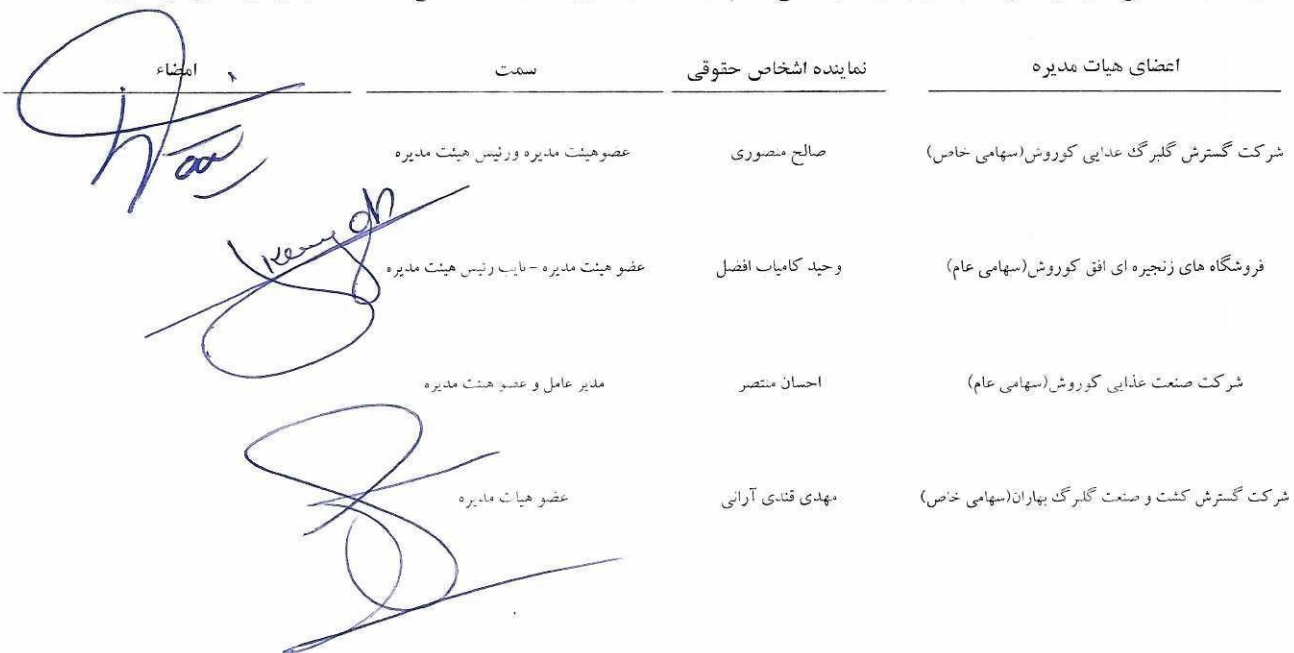 اعضای هیات مدیره نماینده اشخاص حقوقی سمت امضاء
شرکت گسترش گلبرگ غدایی کوروش(سهامی خاص) صالح منصوری عضوهیئت مدیره ورئیس هیئت مدیره
فروشگاه های زنجیره ای افق کوروش(سهامی عام) وحید کامیاب افضل عضو هیئت مدیره - نایب رئیس هیئت مدیره
شرکت صنعت غذایی کوروش(سهامی عام) احسان منتصر مدیر عامل و عضو هیئت مدیره
شرکت گسترش کشت و صنعت گلبرگ بهاران(سهامی خاص) مهدی قندی آرانی عضو هیات مدیره